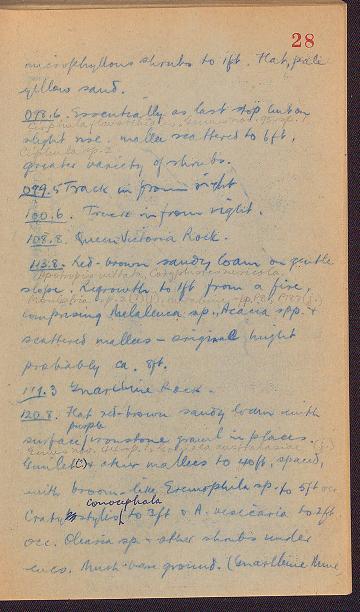 28
microphyllous shrubs to 1ft. Flat, pale
yellow sand.
098.6. Essentially as last stop but on
slight rise. mallee scattered to 6ft,
greater variety of shrubs.
099.5 Track in from right
100.6. Track in from right.
108.8. Queen Victoria Rock.
113.8. Red-brown sandy loam on gentle
slope. Regrowth to 1ft from a fire,
comprising Melaleuca sp., Acacia spp. +
scattered mallees - original height
probably ca. 8ft.
119.3 Gnarlbine Rock.
120.8. Flat red-brown sandy loam with
purple
surface ironstone gravel in places.
Gimlet (C) & other mallees to 40ft, spaced,
with broom-like Eremophila sp. to 5ft occ.
conocephala
Cratystylis to 3ft & A. vesicaria to 2ft
occ. Olearia sp + other shrubs under
eucs. Much bare ground. (Gnarlbine